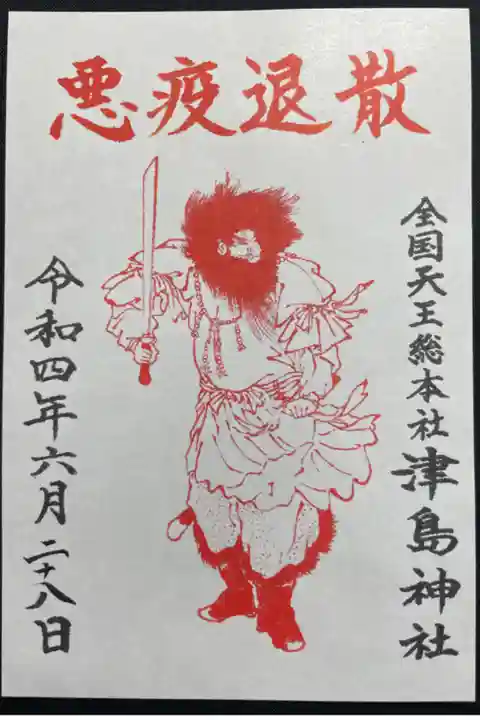 悪疫退散
全国天王総本社津島神社
令和四年六月二十八日